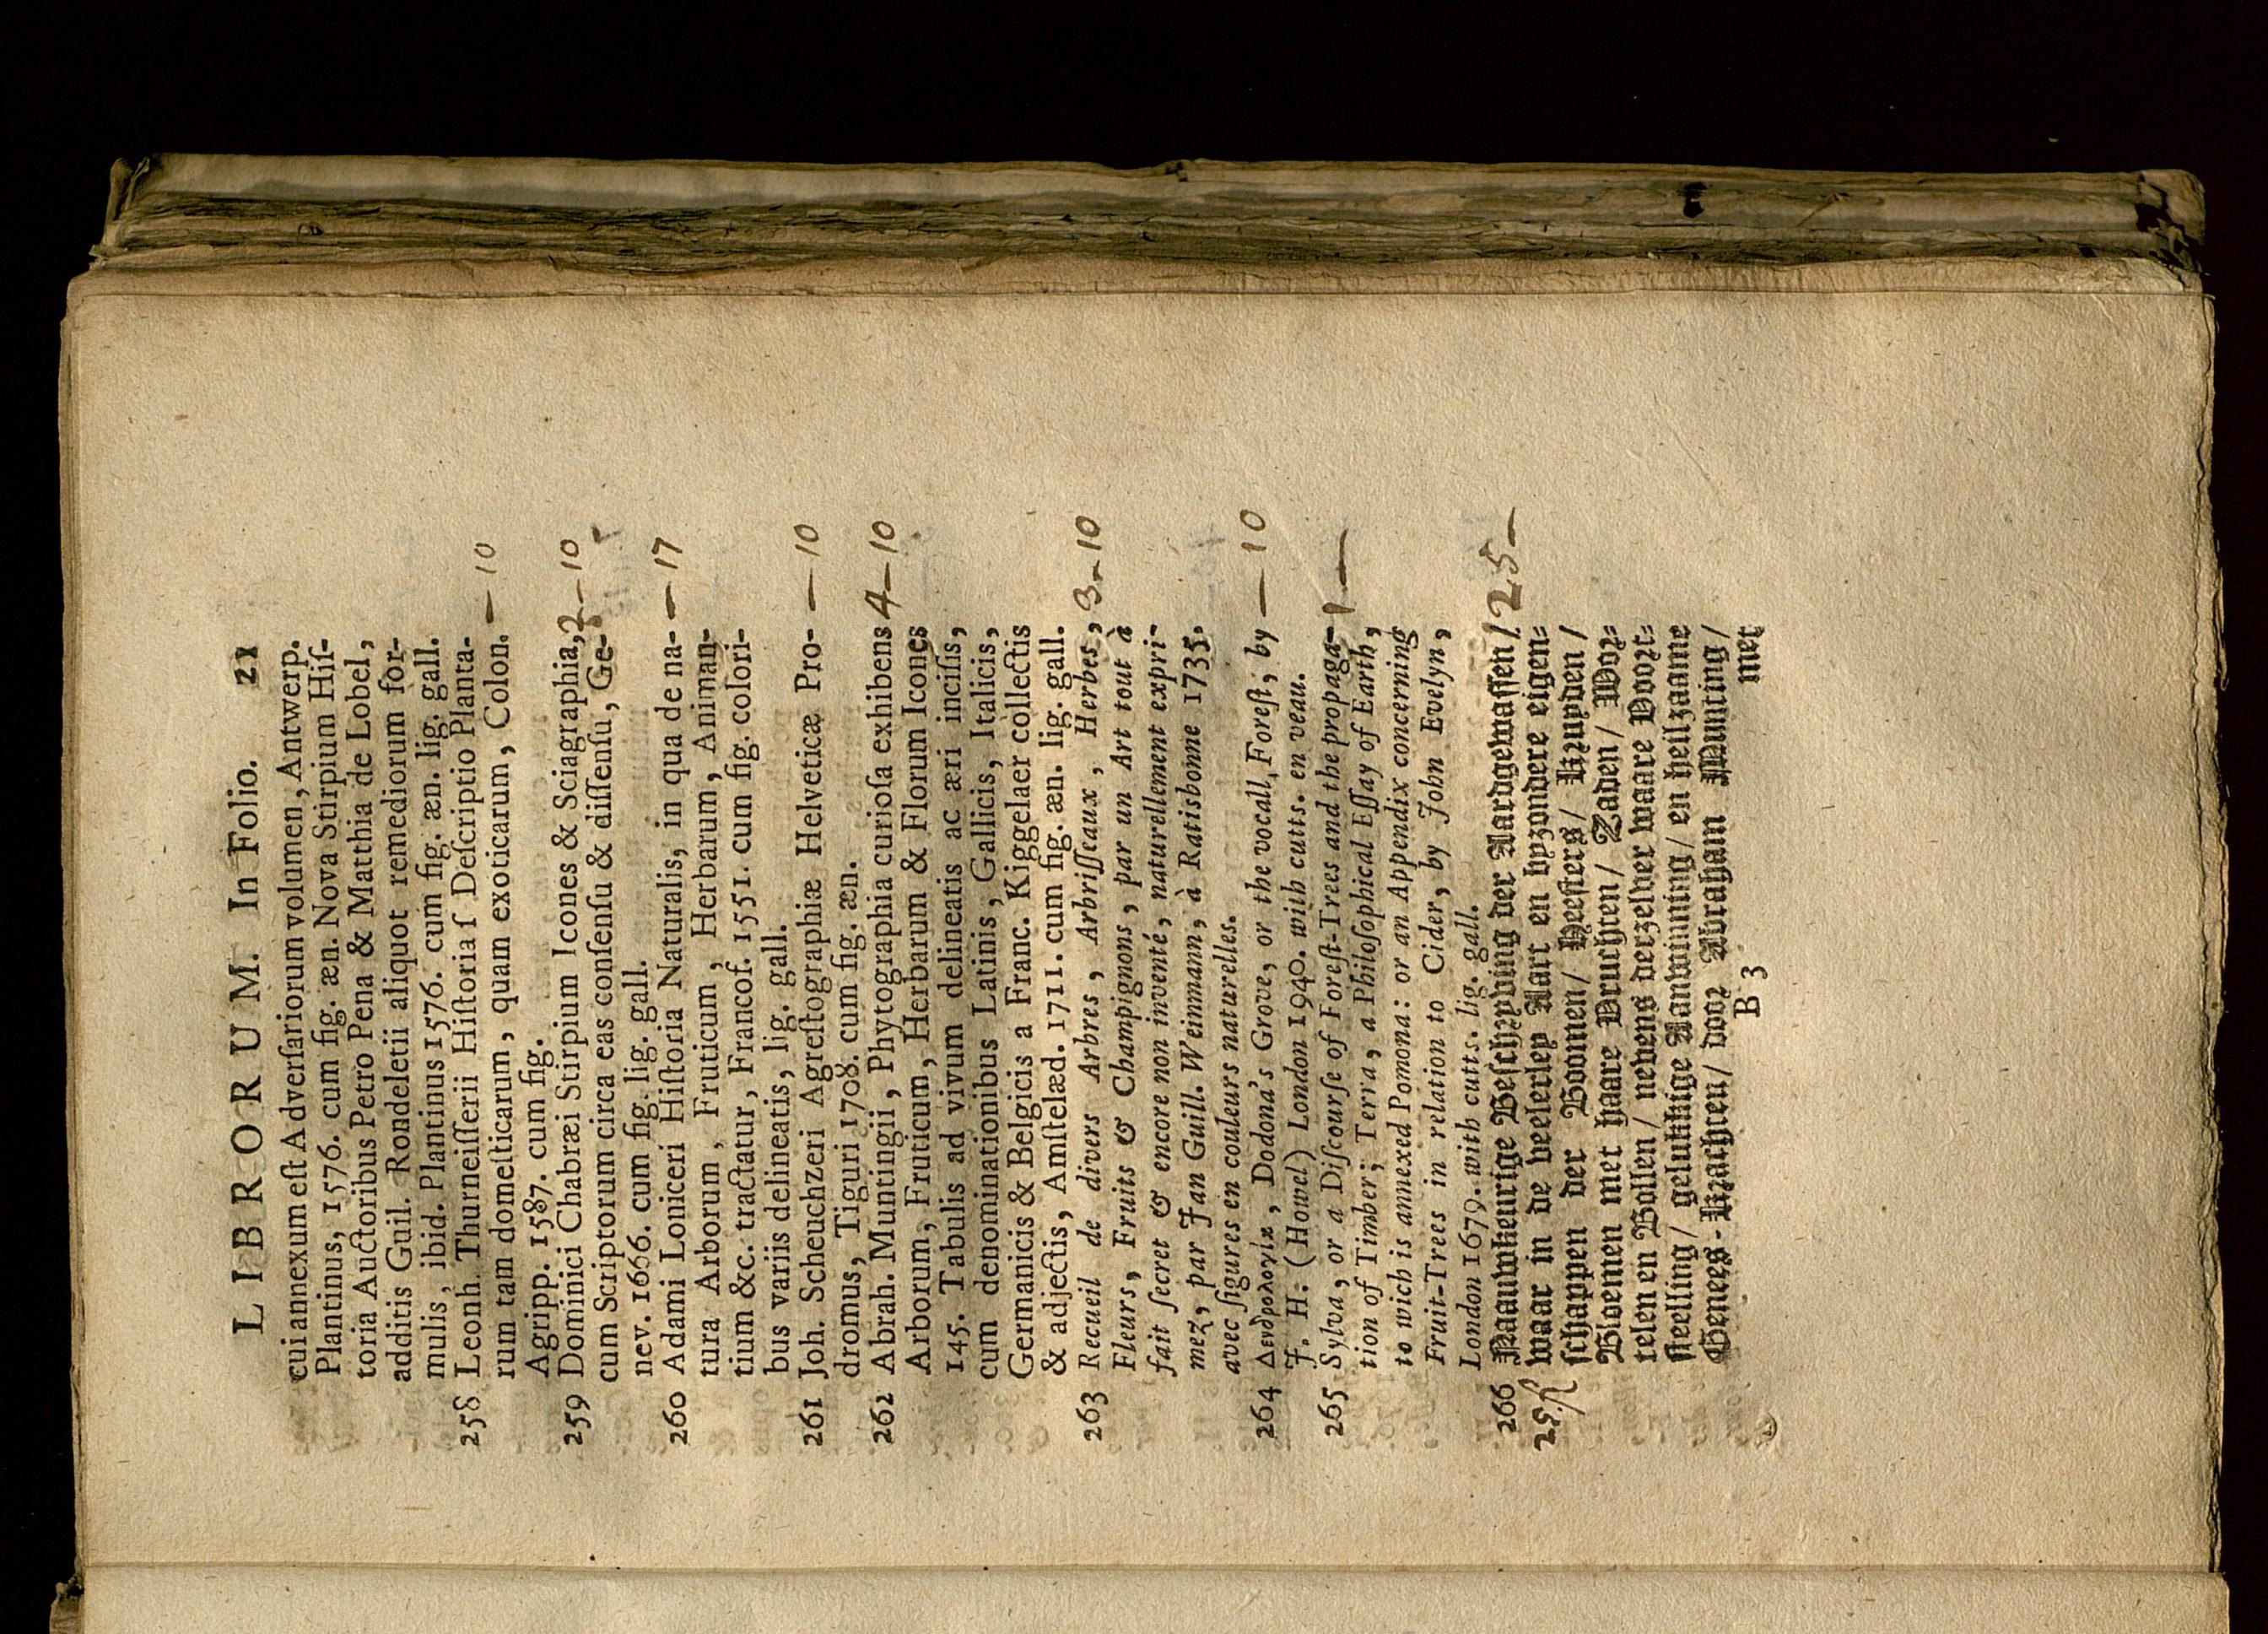 LIBRORUM. In Folio. 21
cui annexum eſt Adverſariorum volumen, Antwerp.
Plantinus, 1576. cum fig. æn. Nova Stirpium Hiſ-
toria Auctoribus Petro Pena & Matthia de Lobel,
additis Guil. Rondeletii aliquot remediorum for-
mulis, ibid. Plantinus 1576. cum fig. æn. lig. gall.
258 Leonh. Thurneiſſerii Hiſtoria ſ Deſcriptio Planta-
rum tam domeſticarum, quam exoticarum, Colon. — 10
Agripp. 1587. cum fig.
259 Dominici Chabræi Stirpium Icones & Sciagraphia, 2 — 10
cum Scriptorum circa eas conſenſu & diſſenſu, Ge-
nev. 1666. cum fig. lig. gall.
260 Adami Loniceri Hiſtoria Naturalis, in qua de na- — 17
tura Arborum, Fruticum, Herbarum, Animan-
tium &c. tractatur, Francof. 1551. cum fig. colori-
bus variis delineatis, lig. gall.
261 Joh. Scheuchzeri Agreſtographiæ Helveticæ Pro- — 10
dromus, Tiguri 1708. cum fig. æn.
262 Abrah. Muntingii, Phytographia curioſa exhibens 4 — 10
Arborum, Fruticum, Herbarum & Florum Icones
145. Tabulis ad vivum delineatis ac æri inciſis,
cum denominationibus Latinis, Gallicis, Italicis,
Germanicis & Belgicis a Franc. Kiggelaer collectis
& adjectis, Amſtelæd. 1711. cum fig. æn. lig. gall.
263 Recueil de divers Arbres, Arbriſſeaux, Herbes, 3 - 10
Fleurs, Fruits & Champignons, par un Art tout à
fait ſecret & encore non inventé, naturellement expri-
mez, par Jan Guill. Weinmann, à Ratisbonne 1735.
avec figures en couleurs naturelles.
264 Δενδρολογία, Dodona's Grove, or the vocall Foreſt, by — 10
J. H: (Howel) London 1940. with cutts. en veau.
265 Sylva, or a Diſcourſe of Foreſt-Trees and the propaga- 1 —
tion of Timber; Terra, a Philoſophical Eſſay of Earth,
to wich is annexed Pomona: or an Appendix concerning
Fruit-Trees in relation to Cider, by John Evelyn,
London 1679. with cutts. lig. gall.
266 Naauwkeurige Beſchryving der Aardgewaſſen / 25 —
waar in de veelerley Aart en byzondere eigen-
ſchappen der Boomen / Heeſters / Kruyden /
Bloemen met haare Vruchten / Zaden / Wor-
telen en Bollen / nevens derzelver waare Voort-
ſteelling / gelukkige Aanwinning / en heilzaame
Genees-Krachten / door Abraham Munting /
B 3 met